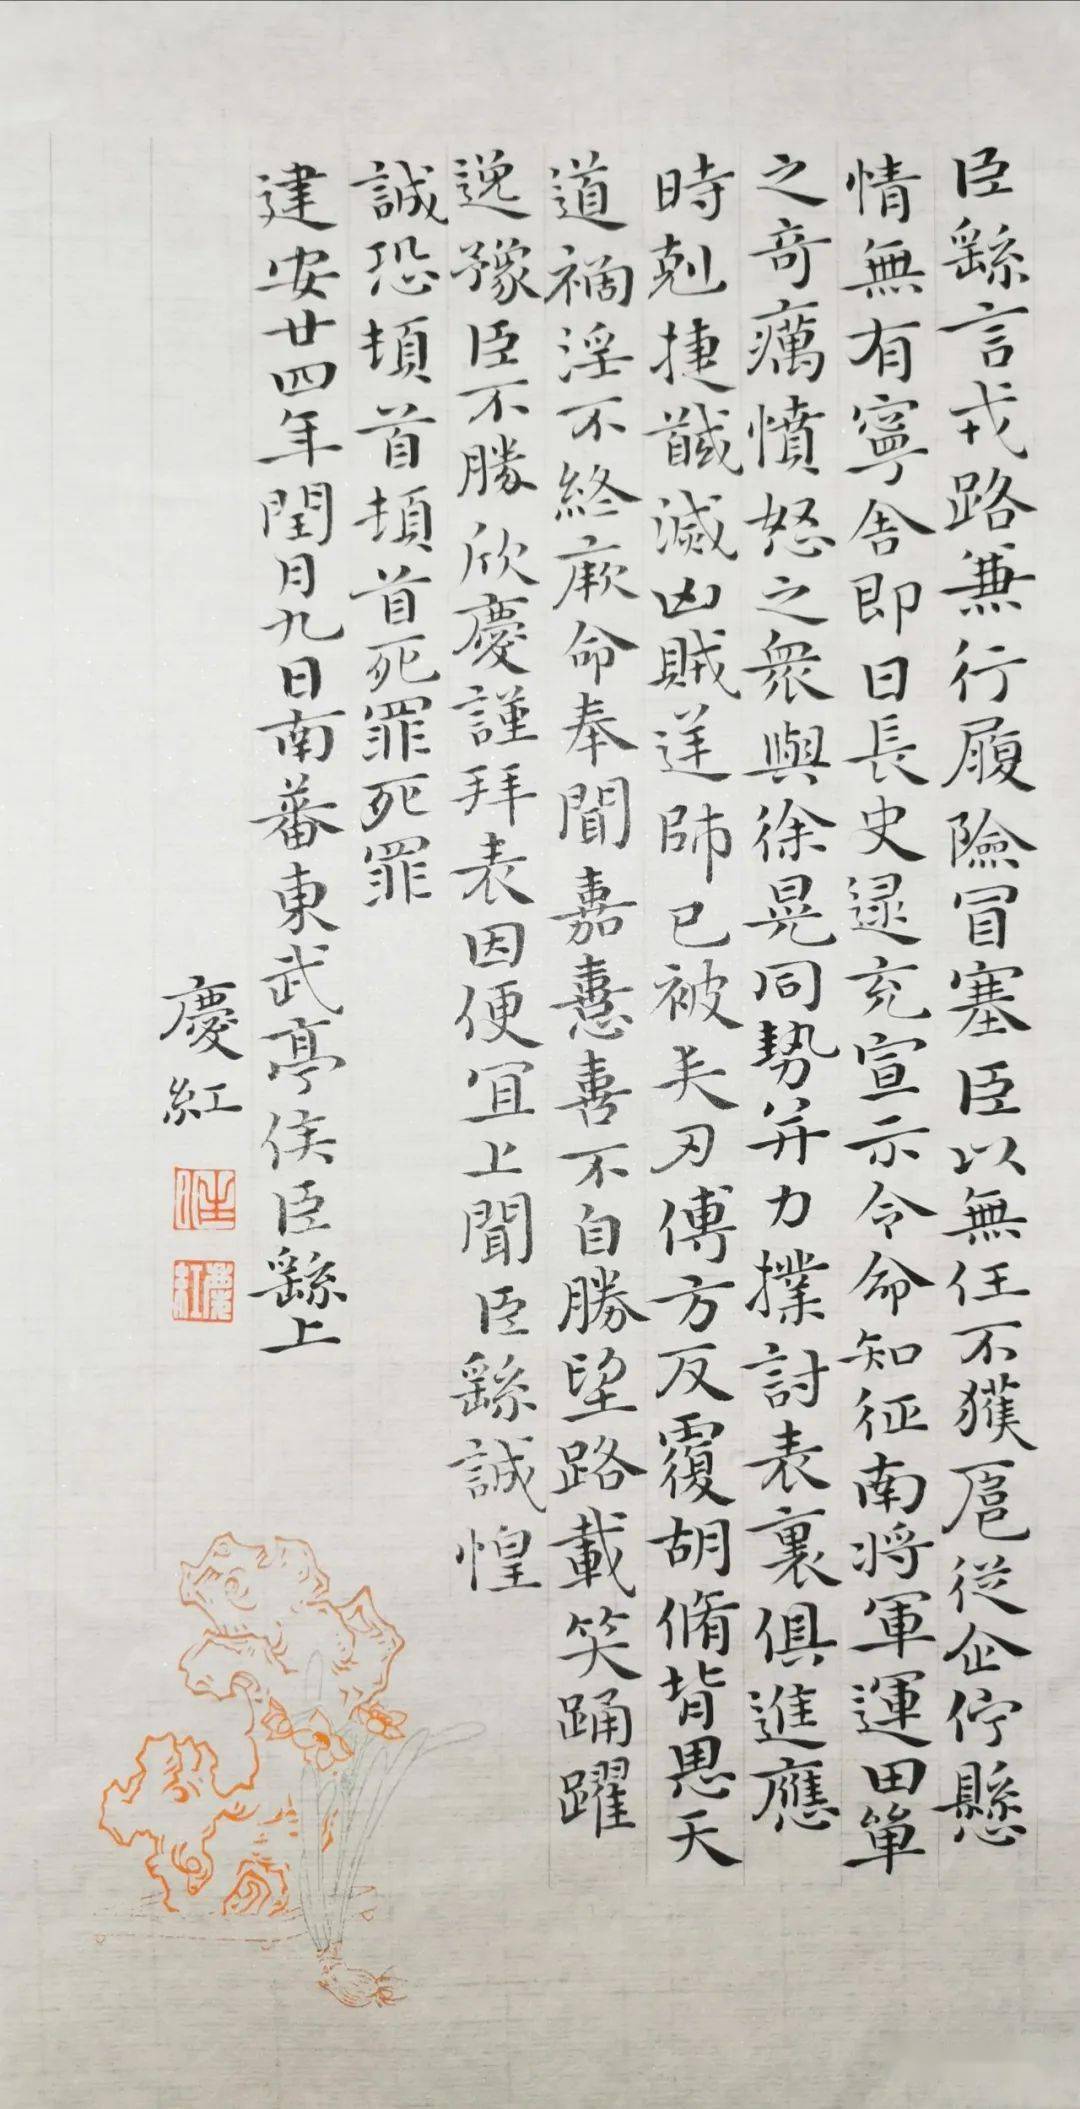 臣繇言戎路兼行履險冒塞臣以無任不獲扈從企佇懸
情無有寧舍即日長史逯充宣示令命知征南將軍運田單
之奇癘憤怒之衆與徐晃同勢并力撲討表裏俱進應
時剋捷馘滅凶賊逆帥已被矢刃傅方反覆胡脩背恩天
道禍淫不終厥命奉聞嘉憙喜不自勝望路載笑踊躍
逸豫臣不勝欣慶謹拜表因便宜上聞臣繇誠惶
誠恐頓首頓首死罪死罪
建安廿四年閏月九日南蕃東武亭侯臣繇上
慶紅
慶紅